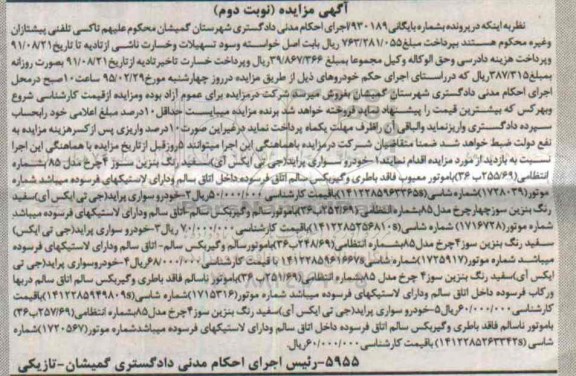 آگهی مزایده (نوبت دوم)
نظر به اینکه در پرونده بشماره بایگانی ۹۳۰۱۸۹ اجرای احکام مدنی دادگستری شهرستان گمیشان محکوم علیهم تاکسی تلفنی پیشتازان
وغیره محکوم هستند بپرداخت مبلغ ۷۶۳/۲۸۱/۰۵۵ ریال بابت اصل خواسته وسود تسهیلات وخسارت ناشی از تادیه تا تاریخ ۹۱/۰۸/۲۱
وپرداخت هزینه دادرسی وحق الوکاله وکیل مجموعا بمبلغ ۳۹/۸۶۷/۳۶۶ ریال وپرداخت خسارت تاخیر تادیه از تاریخ ۹۱/۰۸/۲۱ بصورت روزانه
بمبلغ ۳۸۷/۳۱۵ ریال که در راستای اجرای حکم خودروهای ذیل از طریق مزایده در روز چهارشنبه مورخ ۹۵/۰۲/۲۹ ساعت ۱۰ صبح در محل
اجرای احکام مدنی دادگستری شهرستان گمیشان بفروش میرسد شرکت در مزایده برای عموم آزاد بوده ومزایده از قیمت کارشناسی شروع
وبهرکس که بیشترین قیمت را پیشنهاد نماید فروخته خواهد شد برنده مزایده میبایست حداقل ۱۰ درصد مبلغ اعلامی خود را بحساب
سپرده دادگستری واریز نماید والباقی آن را ظرف مهلت یکماه پرداخت نماید در غیر این صورت ۱۰ درصد واریزی پس از کسر هزینه مزایده به
نفع دولت ضبط خواهد شد ضمنا متقاضیان شرکت در مزایده با هماهنگی این اجرا میتوانند ۵ روز قبل از تاریخ مزایده با هماهنگی این اجرا
نسبت به بازدید از مورد مزایده اقدام نمایند ۱-خودرو سواری پراید(جی تی ایکس آی)سفید رنگ بنزین سوز ۴ چرخ مدل ۸۵ بشماره
انتظامی(۲۵۵/۶۹ب۳۶)باموتور معیوب فاقد باطری وگیربکس سالم اتاق فرسوده داخل اتاق سالم ودارای لاستیکهای فرسوده میباشد شماره
موتور(۱۷۳۸۰۳۹)شماره شاسی(s۱۴۱۲۲۸۵۹۶۳۳۶۵)باقیمت کارشناسی ۵۰/۰۰۰/۰۰۰ ریال ۲-خودرو سواری پراید(جی تی ایکس آی)سفید
رنگ بنزین سوز چهار چرخ مدل ۸۵ بشماره انتظامی(۲۵۲/۶۹ب۳۶)باموتور سالم وگیربکس سالم اتاق سالم ودارای لاستیکهای فرسوده میباشد
شماره موتور(۱۷۱۶۷۲۸) شماره شاسی(s۱۴۱۲۲۸۵۲۵۶۸۱۰)باقیمت کارشناسی ۷۰/۰۰۰/۰۰۰ ریال ۳-خودرو سواری پراید(جی تی ایکس)
سفید رنگ بنزین سوز ۴ چرخ مدل ۸۵ بشماره انتظامی(۲۴۸/۶۹ب۳۶)باموتور سالم وگیربکس سالم- اتاق سالم ودارای لاستیکهای فرسوده
میباشد شماره موتور(۱۷۲۵۹۱۷)شماره شاسی(s۱۴۱۲۲۸۵۹۶۱۶۶۷) با قیمت کارشناسی ۶۸/۰۰۰/۰۰۰ ریال ۴-خودرو سواری پراید(جی تی
ایکس آی)سفید رنگ بنزین سوز ۴ چرخ مدل ۸۵ بشماره انتظامی(۲۵۱/۶۹ب۳۶)باموتور ناسالم فاقد باطری وگیربکس سالم اتاق سالم دربها
ورکاب فرسوده داخل اتاق سالم ودارای لاستیکهای فرسوده میباشد شماره موتور(۱۷۱۵۳۱۶)شماره شاسی(s۱۴۱۲۲۸۵۹۴۹۸۰۹)باقیمت
کارشناسی ۶۰/۰۰۰/۰۰۰ ریال ۵-خودرو سواری پراید(جی تی ایکس آی)سفید رنگ بنزین سوز ۴ چرخ مدل ۸۵ بشماره انتظامی(۲۵۷/۶۹ب۳۶)
باموتور ناسالم فاقد باطری وگیربکس سالم اتاق فرسوده داخل اتاق سالم ودارای لاستیکهای فرسوده میباشد شماره موتور(۱۷۲۰۵۶۷)شماره
شاسی(s۱۴۱۲۲۸۵۲۶۳۳۴۲) باقیمت کارشناسی ۶۰/۰۰۰/۰۰۰ ریال.
۵۹۵۵-رئیس اجرای احکام مدنی دادگستری گمیشان-تازیکی